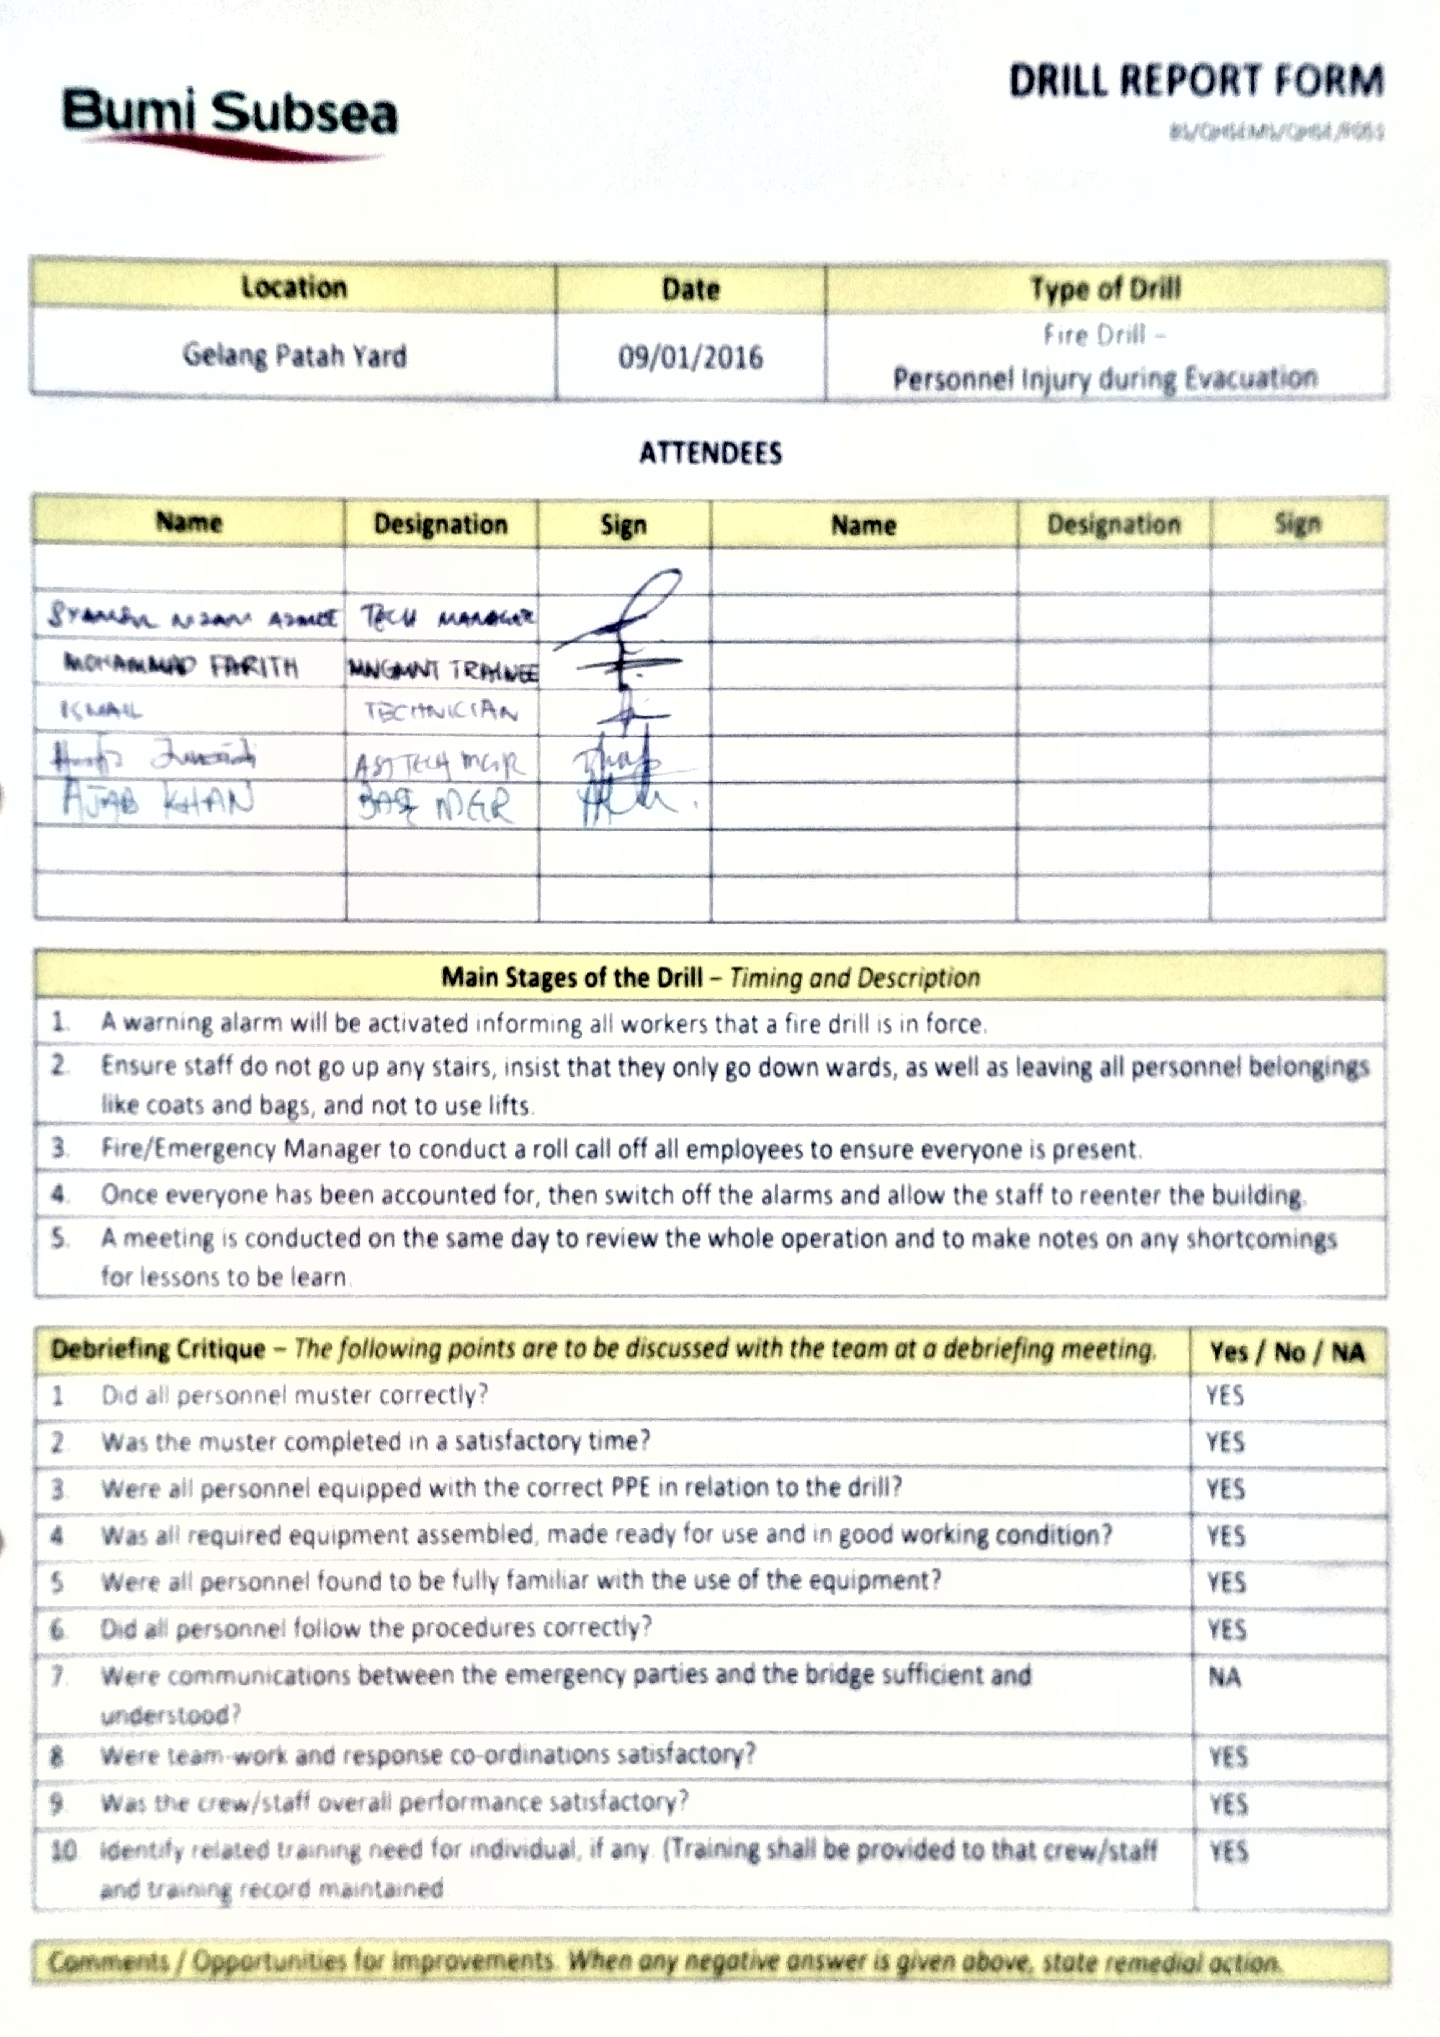 Bumi Subsea
DRILL REPORT FORM
Location Date Type of Drill
Gelang Patah Yard 09/01/2016 Fire Drill –
Personnel Injury during Evacuation
ATTENDEES
Name Designation Sign Name Designation Sign
TECH MANAGER
MOHAMMAD FARITH MNGMNT TRAINEE
ISMAIL TECHNICIAN
ASSTECH MGR
AJAB KHAN BASE MGR
Main Stages of the Drill – Timing and Description
1. A warning alarm will be activated informing all workers that a fire drill is in force.
2. Ensure staff do not go up any stairs, insist that they only go down wards, as well as leaving all personnel belongings
like coats and bags, and not to use lifts.
3. Fire/Emergency Manager to conduct a roll call off all employees to ensure everyone is present.
4. Once everyone has been accounted for, then switch off the alarms and allow the staff to reenter the building.
5. A meeting is conducted on the same day to review the whole operation and to make notes on any shortcomings
for lessons to be learn.
Debriefing Critique – The following points are to be discussed with the team at a debriefing meeting. Yes / No / NA
1 Did all personnel muster correctly? YES
2. Was the muster completed in a satisfactory time? YES
3. Were all personnel equipped with the correct PPE in relation to the drill? YES
4 Was all required equipment assembled, made ready for use and in good working condition? YES
5 Were all personnel found to be fully familiar with the use of the equipment? YES
6. Did all personnel follow the procedures correctly? YES
7. Were communications between the emergency parties and the bridge sufficient and NA
understood?
8 Were team-work and response co-ordinations satisfactory? YES
9. Was the crew/staff overall performance satisfactory? YES
10. Identify related training need for individual, if any. (Training shall be provided to that crew/staff YES
and training record maintained
Comments / Opportunities for Improvements. When any negative answer is given above, state remedial action.